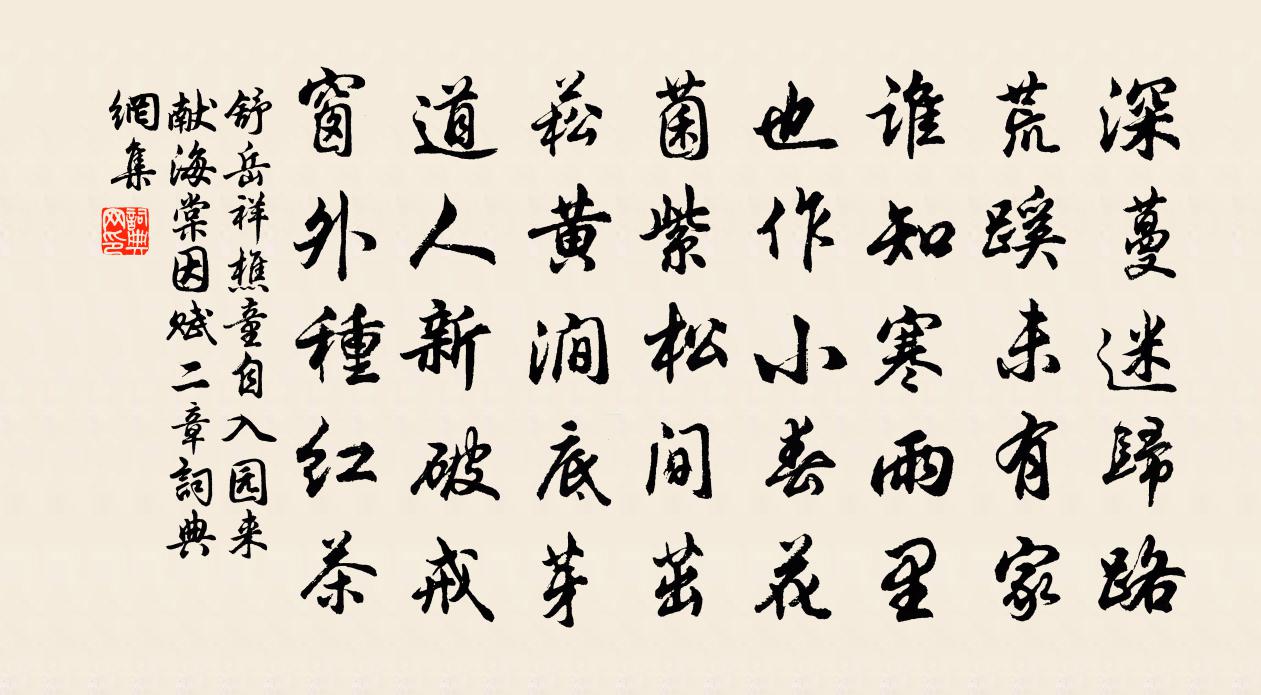 深蔓迷歸路
荒蹊未有家
谁知寒雨里
也作小春花
菌紫松间茁
菘黄澗底芽
道人新破戒
窗外種红茶
舒岳祥樵童自入园来
献海棠因赋二章詞典
網集
詞典网印